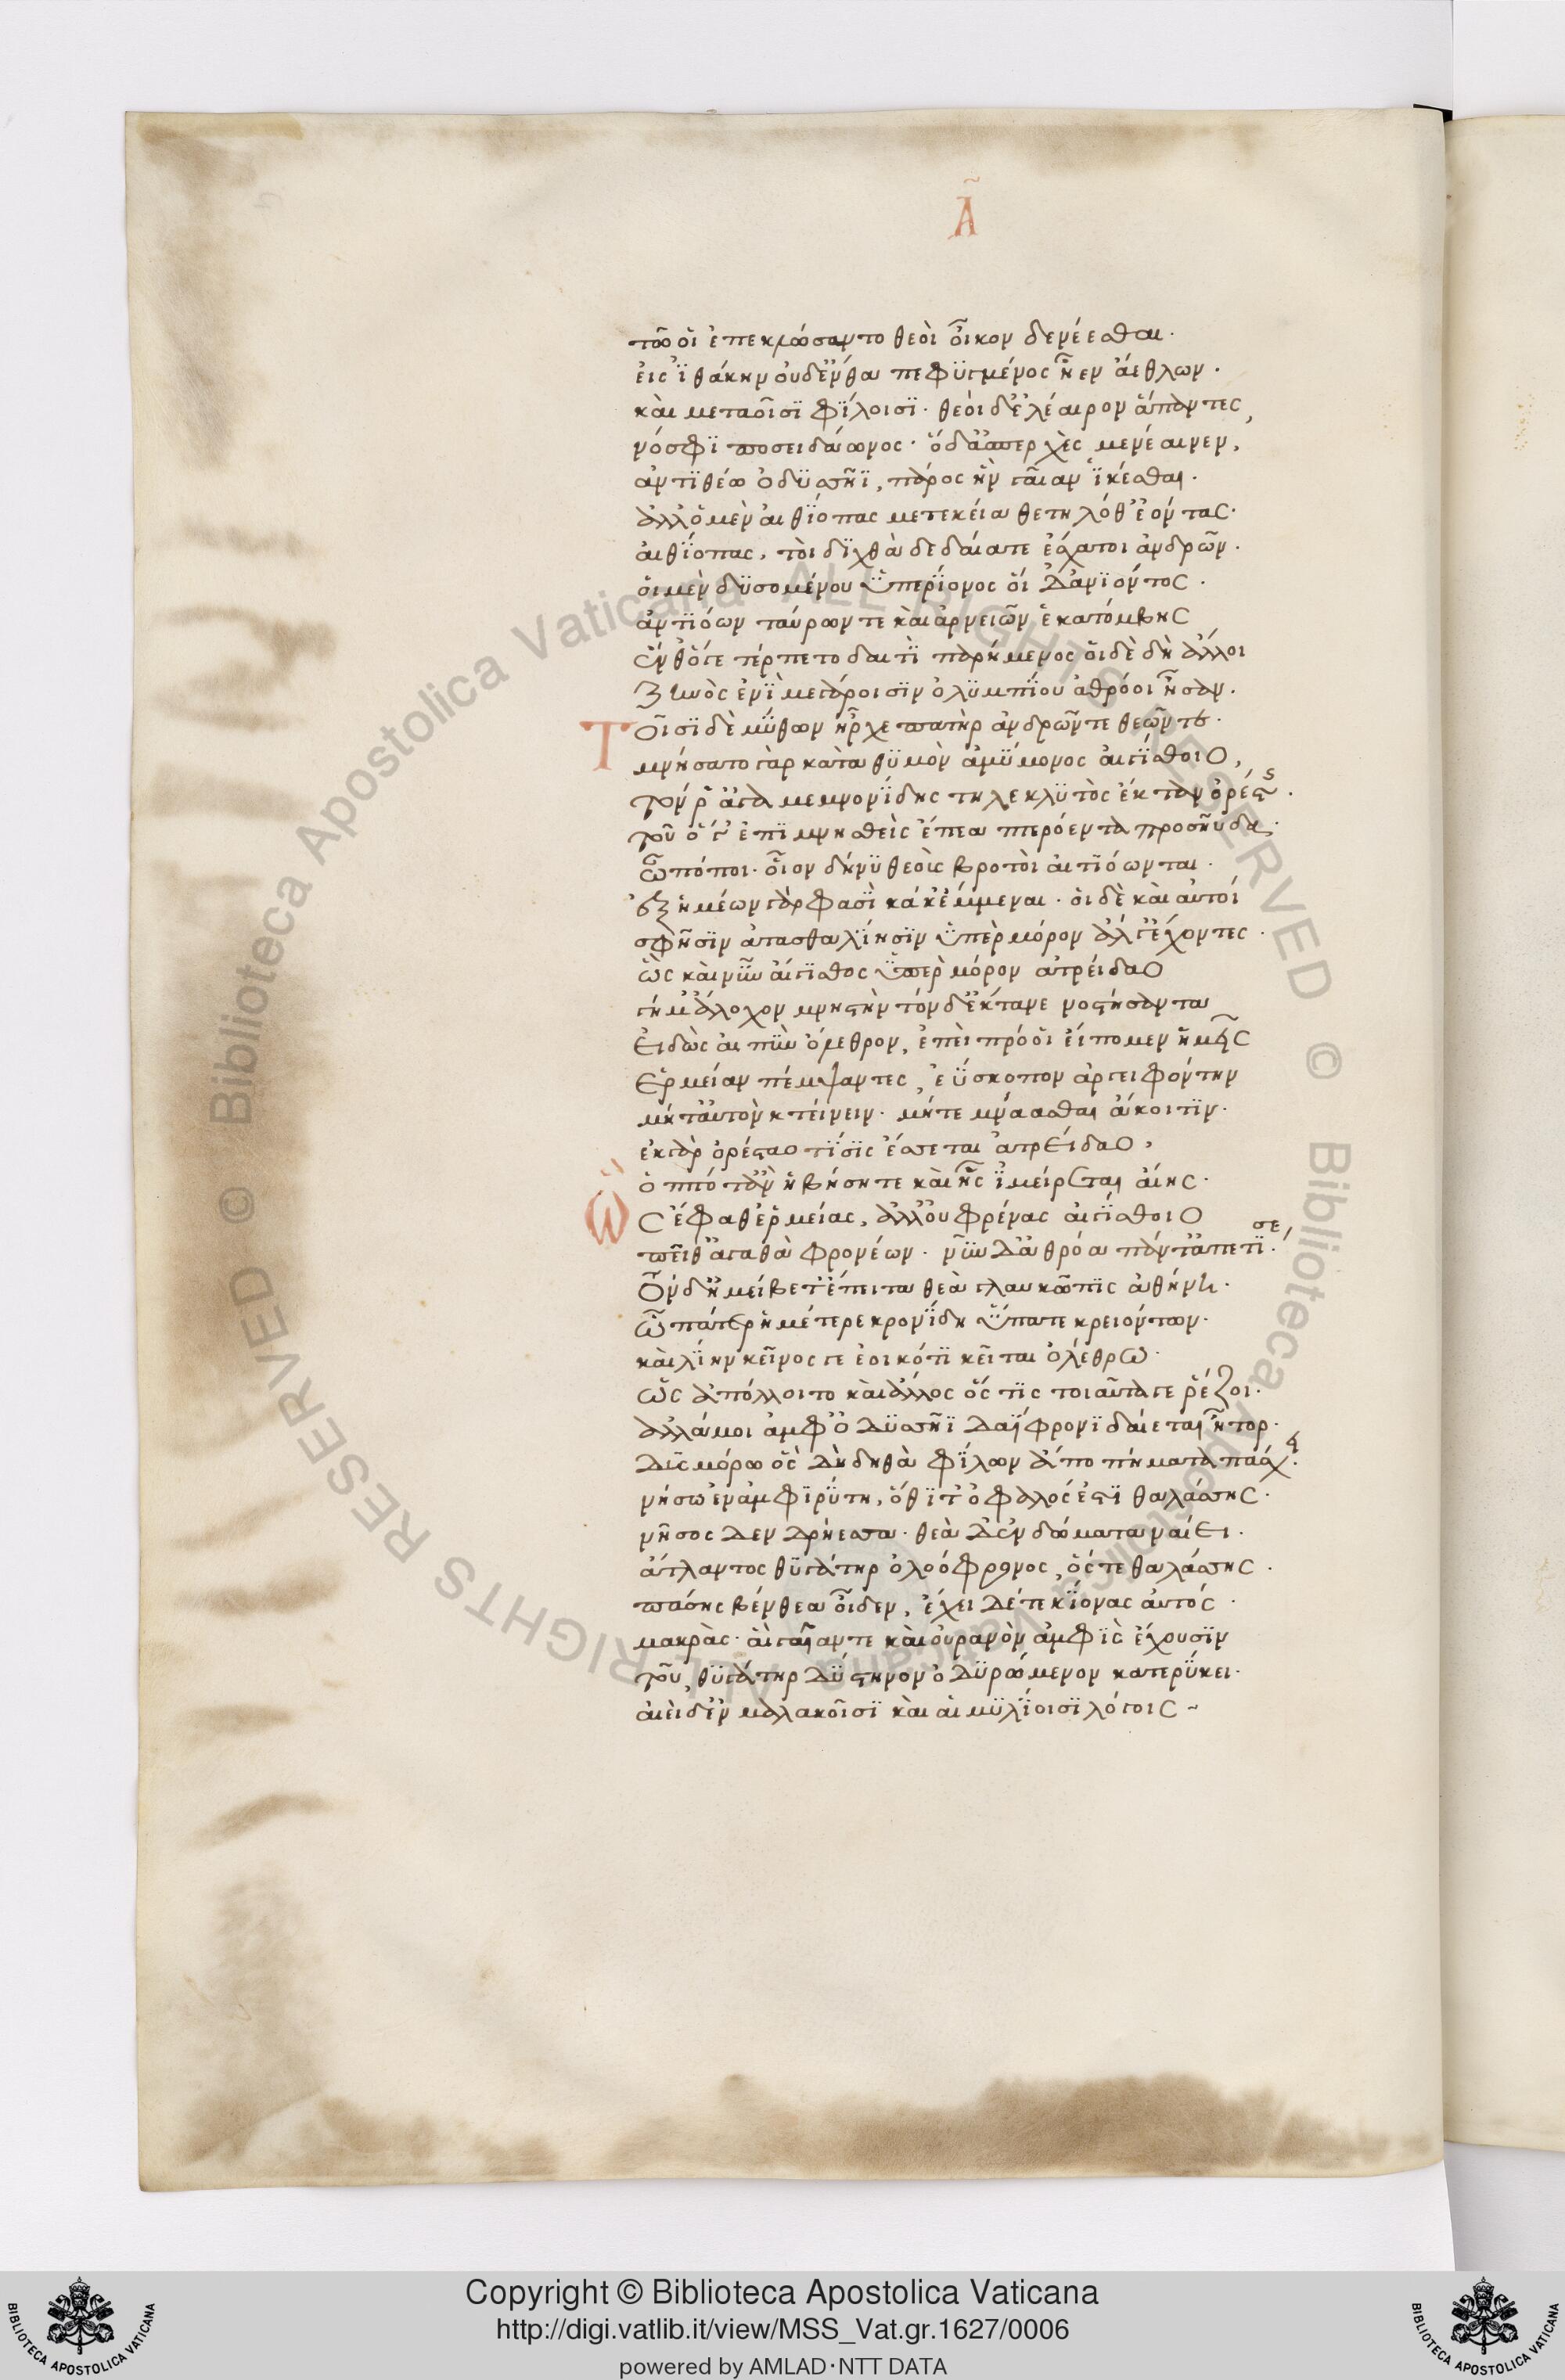 Ᾱ
τῶ οἱ ἐπεκλώσαντο θεοὶ οἶκον δὲ νέεσθαι·
εἰς ἰθάκην οὐδ' ἔνθα πεφυγμένος ἦεν ἀέθλων·
καὶ μετὰ οἷσι φίλοισι· θεοὶ δ' ἐλέαιρον ἅπαντες,
νόσφι ποσειδάωνος· ὁ δ' ἀσπερχὲς μενέαινεν,
ἀντιθέω ὀδυσῆϊ, πάρος ἣν γαῖαν ἱκέσθαι·
ἀλλ' ὁ μὲν αἰθίοπας μετεκείαθε τηλόθ' ἐόντας·
αἰθίοπας, τοὶ διχθὰ δεδαίατε ἔσχατοι ἀνδρῶν·
οἱ μὲν δυσομένου ὑπερίονος οἱ δ' ἀνιόντος·
ἀντιόων ταύρων τε καὶ ἀρνειῶν ἑκατόμβης
ἔνθ' ὅγε τέρπετο δαιτὶ παρήμενος οἱ δὲ δὴ ἄλλοι
ζηνὸς ἐνὶ μεγάροισιν ὀλυμπίου ἀθρόοι ἦσαν·
Τοῖσι δὲ μύθων ἦρχε πατὴρ ἀνδρῶν τε θεῶν τε·
μνήσατο γὰρ κατὰ θυμὸν ἀμύμονος αἰγίσθοιο,
τόν ῥ' ἀγαμεμνονίδης τηλεκλυτὸς ἔκταν ὀρέστης·
τοῦ ὅγ' ἐπιμνησθεὶς ἔπεα πτερόεντα προσηύδα·
ὦ πόποι· οἷον δή νυ θεοὺς βροτοὶ αἰτιόωνται·
ἐξ ἡμέων γάρ φασι κάκ' ἔμμεναι· οἱ δὲ καὶ αὐτοί
σφῆσιν ἀτασθαλίησιν ὑπὲρ μόρον ἄλγε' ἔχοντες·
ὡς καὶ νῦν αἴγισθος ὑπὲρ μόρον ἀτρείδαο
γῆμ' ἄλοχον μνηστὴν τόνδ' ἔκτανε νοστήσαντα
εἰδὼς αἰπὺν ὄλεθρον, ἐπεὶ πρό οἱ εἴπομεν ἡμεῖς
ἑρμείαν πέμψαντες, ἐύσκοπον ἀργειφόντην
μήτ' αὐτὸν κτείνειν· μήτε μνάασθαι ἄκοιτιν·
ἐκ γὰρ ὀρέσταο τίσις ἔσσεται ἀτρείδαο,
ὁππότ' ἂν ἡβήση τε καὶ ἧς ἱμείρεται αἴης·
Ὣς ἔφαθ' ἑρμείας, ἀλλ' οὐ φρένας αἰγίσθοιο
πεῖθ' ἀγαθὰ φρονέων· νῦν δ' ἀθρόα πάντ' ἀπέτισε·
Τὸν δ' ἠμείβετ' ἔπειτα θεὰ γλαυκῶπις ἀθήνη·
ὦ πάτερ ἡμέτερε κρονίδη ὕπατε κρειόντων·
καὶ λίην κεῖνος γε ἐοικότι κεῖται ὀλέθρω·
ὡς ἀπόλλοιτο καὶ ἄλλος ὅς τις τοιαῦτά γε ῥέζοι·
ἀλλά μοι ἀμφ' ὀδυσῆϊ δαΐφρονι δαίεται ἦτορ·
δυσμόρω ὃς δὴ δηθὰ φίλων ἄπο πήματα πάσχει·
νήσω ἐν ἀμφιρύτη, ὅθι τ' ὀμφαλός ἐστι θαλάσσης·
νῆσος δενδρήεσσα· θεὰ δ' ἐν δώματα ναίει·
ἄτλαντος θυγάτηρ ὀλοόφρονος, ὅς τε θαλάσσης·
πάσης βένθεα οἶδεν, ἔχει δέ τε κίονας αὐτός·
μακράς· αἳ γαῖαν τε καὶ οὐρανὸν ἀμφὶς ἔχουσιν
τοῦ, θυγάτηρ δύστηνον ὀδυρώμενον κατερύκει·
αἰεὶ δ' ἐν μαλακοῖσι καὶ αἱμυλίοισι λόγοις ~
Copyright © Biblioteca Apostolica Vaticana
http://digi.vatlib.it/view/MSS_Vat.gr.1627/0006
powered by AMLAD·NTT DATA
BIBLIOTECA APOSTOLICA VATICANA
BIBLIOTECA APOSTOLICA VATICANA
© Biblioteca Apostolica Vaticana ALL RIGHTS RESERVED
© Biblioteca Apostolica Vaticana ALL RIGHTS RESERVED